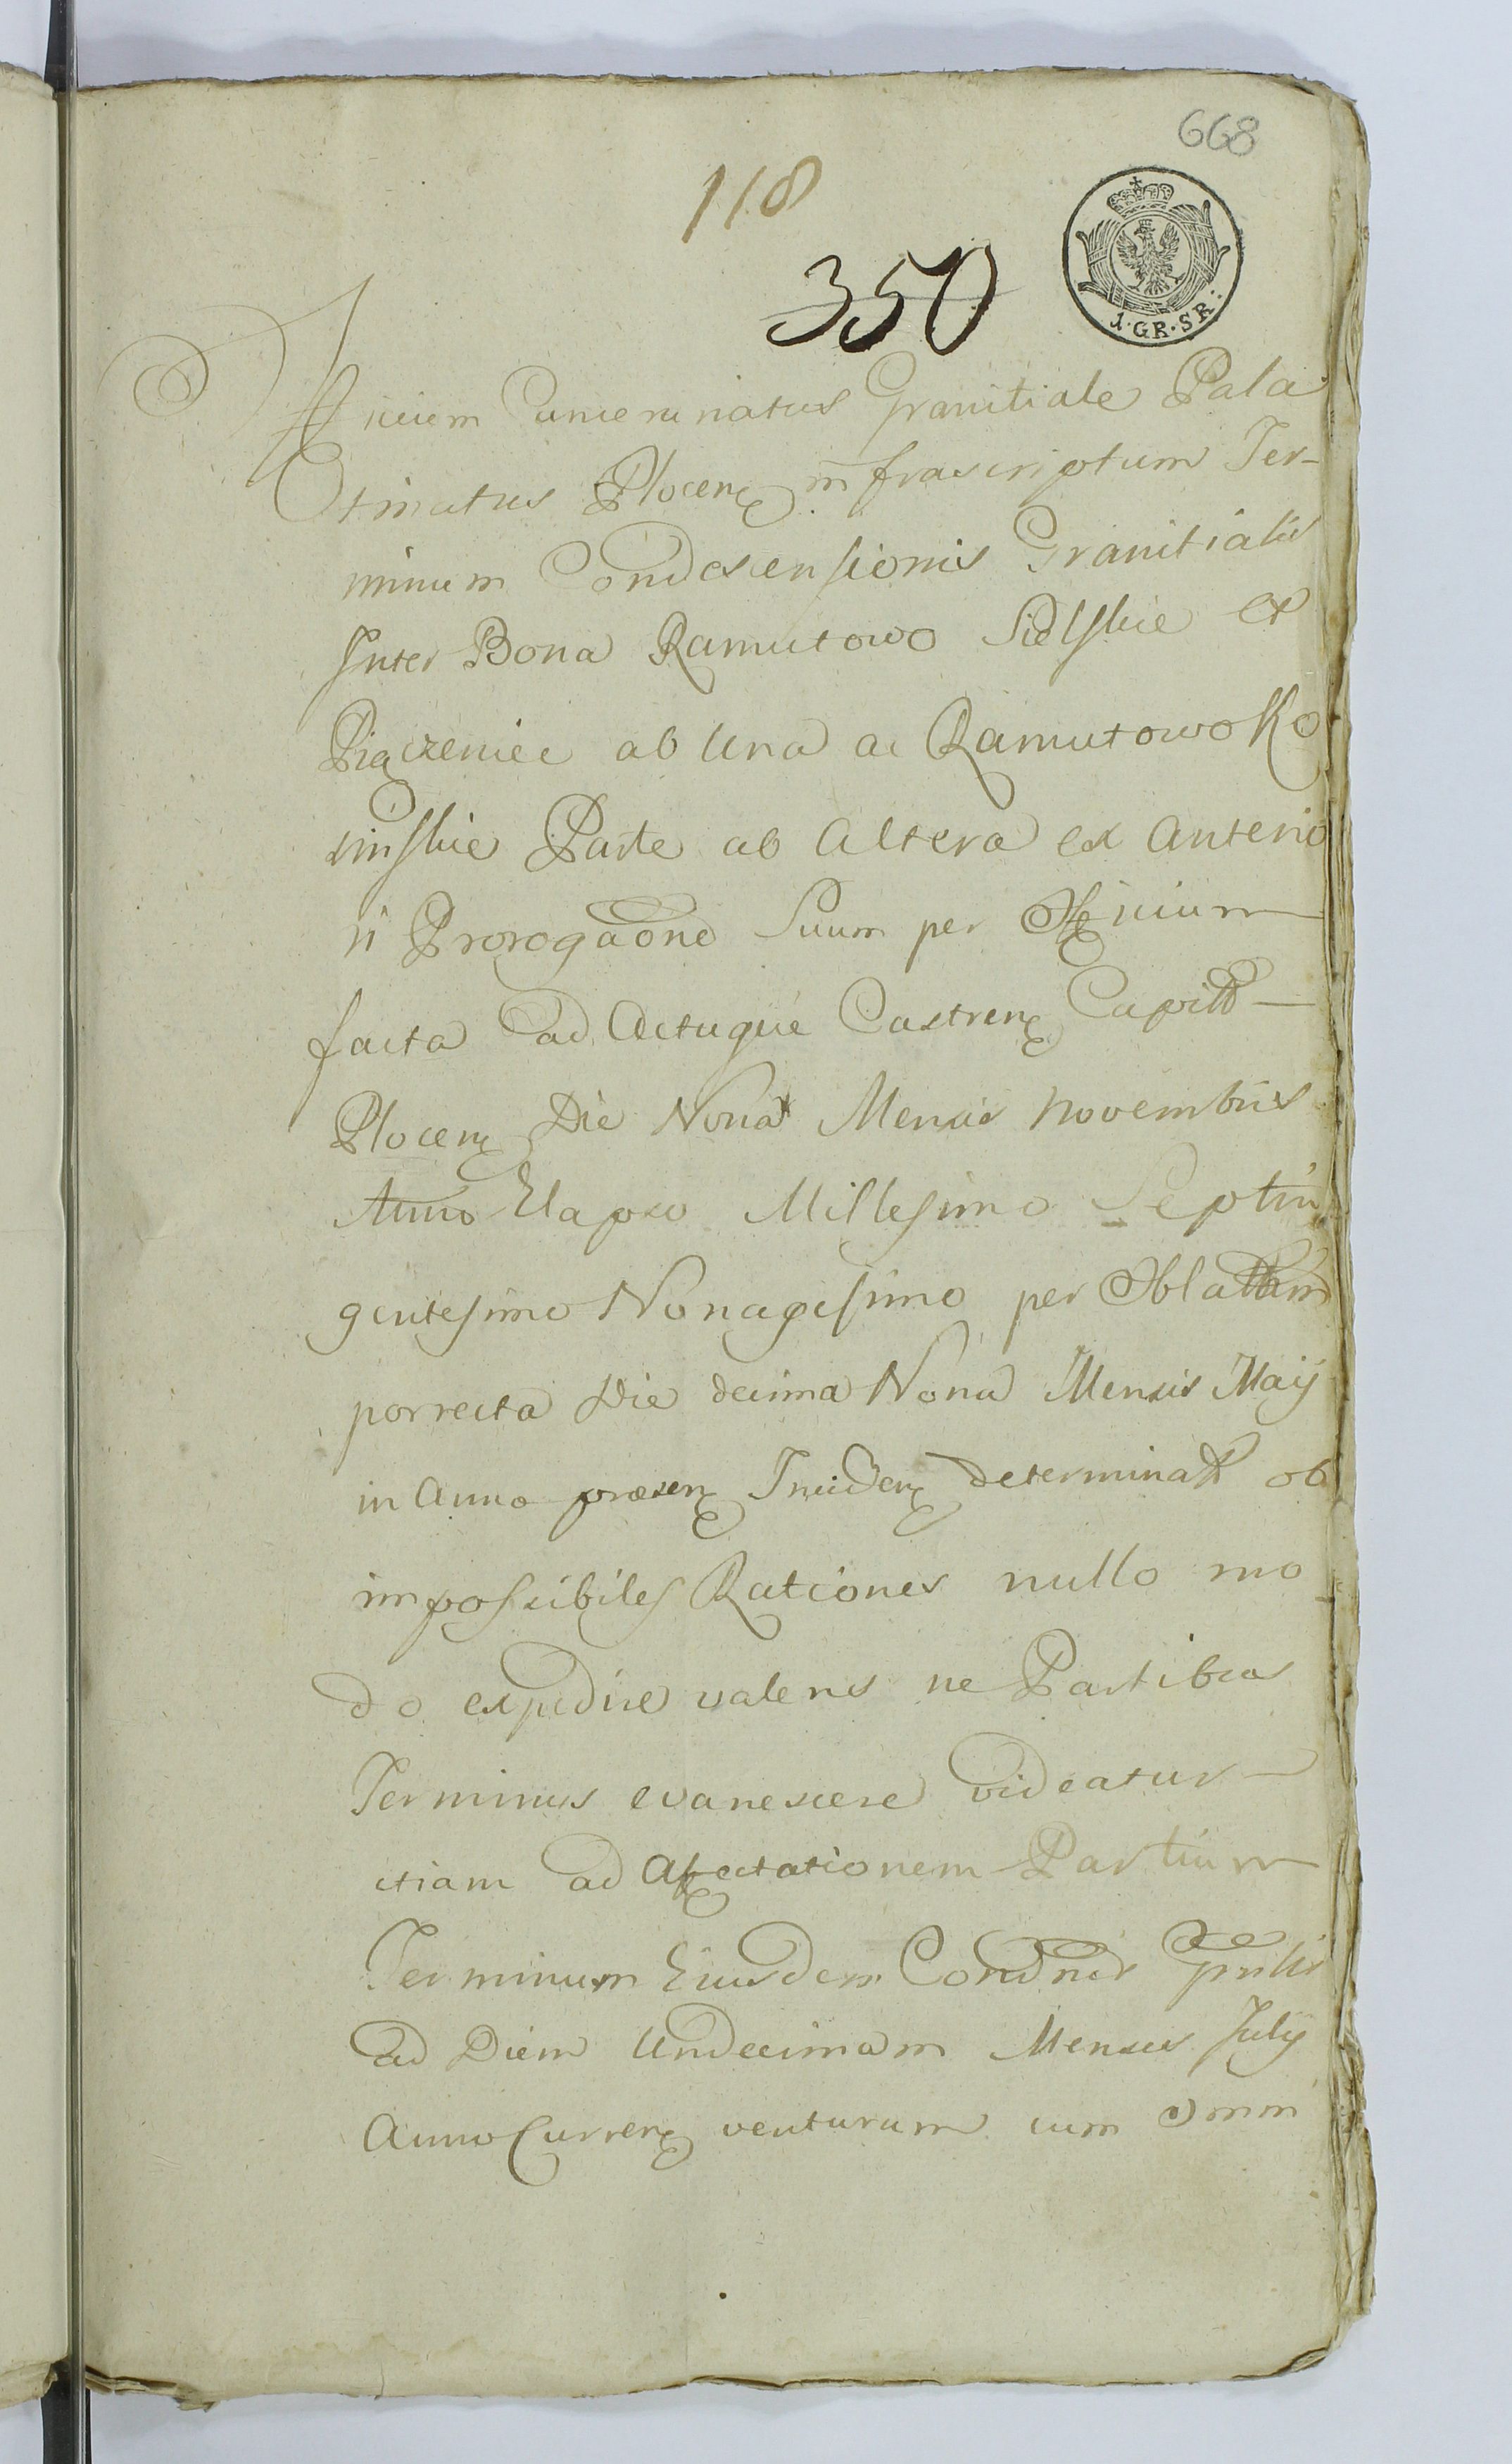 668
118
350
1·GR·SR:
Officium Camerariatus Granitiale Pala
tinatus Plocen infrascriptum Ter-
minum Condescensionis Granitialis
Inter Bona Ramutowo Sielskie et
Piączeniec ab Una ac Ramutowo Ko
zinskie Parte ab Altera ex Anterio
ri Prorogaone Suum per Officium
facta ad Actuque Castren Capitt
Plocen Die Nona Mensis Novembris
Anno Elapso Millesimo Septin
gentesimo Nonagesimo per Oblattam
porrecta Die decima Nona Mensis Maij
in Anno præsen Inciden determinatt ob
impossibiles Rationes nullo mo
do expedire valens ne Partibus
Terminus evanescere videatur
etiam ad Affectationem Partium
Terminum Eiusdem Condnis
ad Diem Undecimam Mensis July
Anno Curren venturum cum Omni